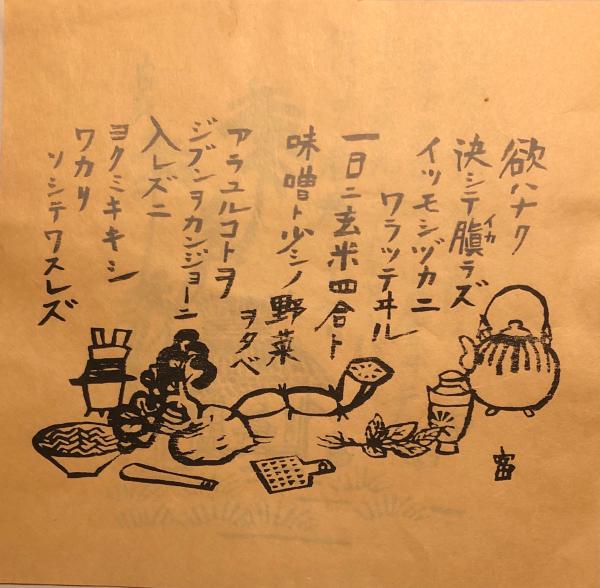 欲ハナク
決シテ瞋ラズ
イカ
イツモシヅカニ
ワラッテヰル
一日ニ玄米四合ト
味噌ト少シノ野菜
ヲタベ
アラユルコトヲ
ジブンヲカンジョーニ
入レズニ
ヨクミキキシ
ワカリ
ソシテワスレズ